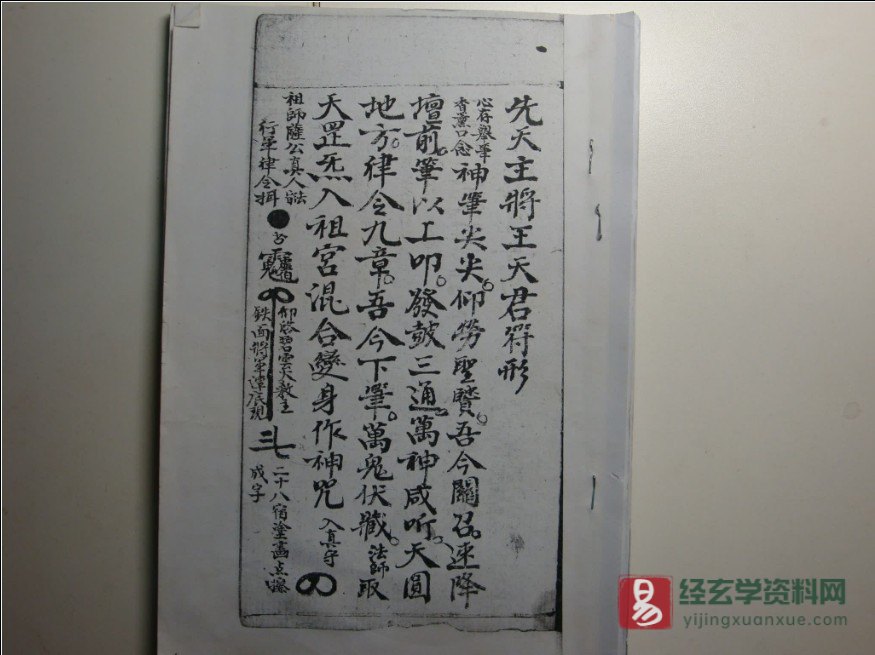 先天主將王天君符形
心存舉筆
香薰口念
神筆尖尖仰勞聖賢吾今關召速降
壇前筆以工叩發鼓三通萬神咸听天圓
地方律令九章吾今下筆萬鬼伏藏法師取
天罡炁入祖宮混合變身作神咒入真守
祖師薩公真人
行軍律令
仰啓碧霄教主
鉄面將軍
二十八宿塗畵点
成字
易
经玄学资料网
yijingxuanxue.com